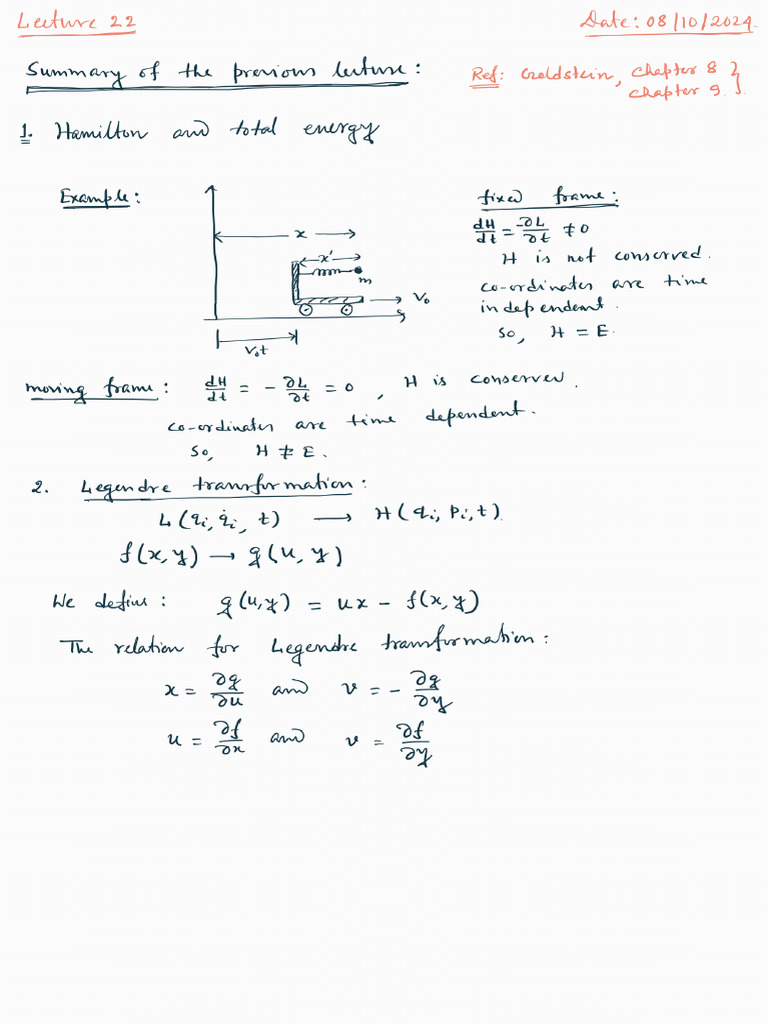 Lecture 22
Date: 08/10/2024
Summary of the previous lecture:
Ref: Goldstein, Chapter 8 }
Chapter 9. }
1. Hamilton and total energy
Example:
x
x'
m
V₀
V₀t
fixed frame:
dH/dt = -∂L/∂t ≠ 0
H is not conserved.
co-ordinates are time
independent.
So, H = E.
moving frame: dH/dt = - ∂L/∂t = 0, H is conserved.
co-ordinates are time dependent.
So, H ≠ E.
2. Legendre transformation:
L(qᵢ, q̇ᵢ, t) → H(qᵢ, pᵢ, t)
f(x, y) → g(u, y)
We define: g(u, y) = ux - f(x, y)
The relation for Legendre transformation:
x = ∂g/∂u and v = - ∂g/∂y
u = ∂f/∂x and v = ∂f/∂y